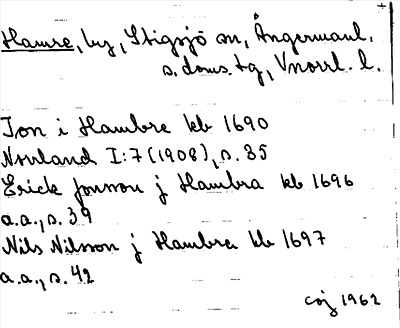 Hamre, by, Stigsjö sn, Ångermanl.
s. doms. tg, Vnorrl. l.
Jon i Hambre kb 1690
Norrland I:7 (1908), s. 35
Erick Jonsson j Hambra kb 1696
a.a., s. 39
Nils Nilsson j Hambra kb 1697
a.a., s. 42
1962